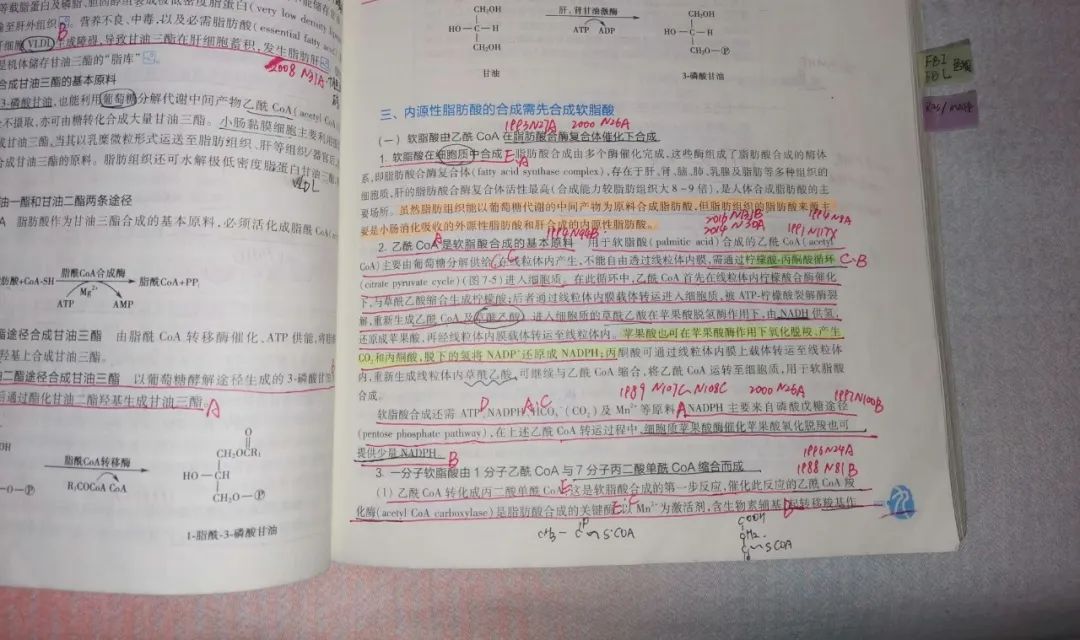 等载脂蛋白及磷脂、胆固醇组装成极低密度脂蛋白(very low density
输至肝外组织
营养不良、中毒,以及必需脂肪酸(essential fatty
VLDL
生成障碍,导致甘油三酯在肝细胞蓄积,发生脂肪肝
B
是机体储存甘油三酯的“脂库”
2008 N31A
合成甘油三酯的基本原料
3-磷酸甘油,也能利用葡萄糖分解代谢中间产物乙酰 CoA(acetyl CoA
摄取,亦可由糖转化合成大量甘油三酯。小肠黏膜细胞主要利用
甘油三酯,当其以乳糜微粒形式运送至脂肪组织、肝等组织/器官后
合成甘油三酯的原料。脂肪组织还可水解极低密度脂蛋白甘油三酯
VLDL
油一酯和甘油二酯两条途径
脂肪酸作为甘油三酯合成的基本原料,必须活化成脂酰 CoA
脂酰CoA合成酶
肪酸+CoA-SH
脂酰CoA+PPi
Mg²⁺
ATP AMP
酯途径合成甘油三酯 由脂酰 CoA 转移酶催化、ATP 供能,将脂
羟基上合成甘油三酯。
二酯途径合成甘油三酯 以葡萄糖酵解途径生成的 3-磷酸甘油
后通过酯化甘油二酯羟基生成甘油三酯。A
O
脂酰CoA转移酶
CH₂OCR₁
HO—CH
R₁COCoA CoA
CH₂O—Ⓟ
1-脂酰-3-磷酸甘油
CH₂OH
HO—C—H
CH₂OH
甘油
肝、肾甘油激酶
ATP ADP
CH₂OH
HO—C—H
CH₂O—Ⓟ
3-磷酸甘油
三、内源性脂肪酸的合成需先合成软脂酸
1993N27A 2000 N26A
(一)软脂酸由乙酰 CoA 在脂肪酸合酶复合体催化下合成
1. 软脂酸在细胞质中合成 脂肪酸合成由多个酶催化完成,这些酶组成了脂肪酸合成的酶体
系,即脂肪酸合酶复合体(fatty acid synthase complex),存在于肝、肾、脑、肺、乳腺及脂肪等多种组织的
细胞质,肝的脂肪酸合酶复合体活性最高(合成能力较脂肪组织大 8~9 倍),是人体合成脂肪酸的主
要场所。虽然脂肪组织能以葡萄糖代谢的中间产物为原料合成脂肪酸,但脂肪组织的脂肪酸来源主
要是小肠消化吸收的外源性脂肪酸和肝合成的内源性脂肪酸。
2016 N31B
2014 N30A 1991N117X
1994 N44B
2. 乙酰 CoA 是软脂酸合成的基本原料 用于软脂酸(palmitic acid)合成的乙酰 CoA(acetyl
CoA)主要由葡萄糖分解供给,在线粒体内产生,不能自由透过线粒体内膜,需通过柠檬酸-丙酮酸循环 C-B
(citrate pyruvate cycle)(图 7-5)进入细胞质。在此循环中,乙酰 CoA 首先在线粒体内柠檬酸合酶催化
下,与草酰乙酸缩合生成柠檬酸;后者通过线粒体内膜载体转运进入细胞质,被 ATP-柠檬酸裂解酶裂
解,重新生成乙酰 CoA 及草酰乙酸。进入细胞质的草酰乙酸在苹果酸脱氢酶作用下,由 NADH 供氢,
还原成苹果酸,再经线粒体内膜载体转运至线粒体内。苹果酸也可在苹果酸酶作用下氧化脱羧,产生
CO₂和丙酮酸,脱下的氢将 NADP⁺还原成 NADPH;丙酮酸可通过线粒体内膜上载体转运至线粒体
内,重新生成线粒体内草酰乙酸,可继续与乙酰 CoA 缩合,将乙酰 CoA 运转至细胞质,用于软脂酸
合成。
1989 N107C N108C 2000 N26A
软脂酸合成还需 ATP、NADPH、HCO₃⁻(CO₂)及 Mn²⁺等原料 NADPH 主要来自磷酸戊糖途径
(pentose phosphate pathway),在上述乙酰 CoA 转运过程中,细胞质苹果酸酶催化苹果酸氧化脱羧也可
提供少量 NADPH。B
1996N24A
1988 N81B
3. 一分子软脂酸由 1 分子乙酰 CoA 与 7 分子丙二酸单酰 CoA 缩合而成
(1)乙酰 CoA 转化成丙二酸单酰 CoA:这是软脂酸合成的第一步反应,催化此反应的乙酰 CoA 羧
化酶(acetyl CoA carboxylase)是脂肪酸合成的关键酶,以 Mn²⁺为激活剂,含生物素辅基
CH₃—C~SCOA
COOH
CH₂
C~SCOA